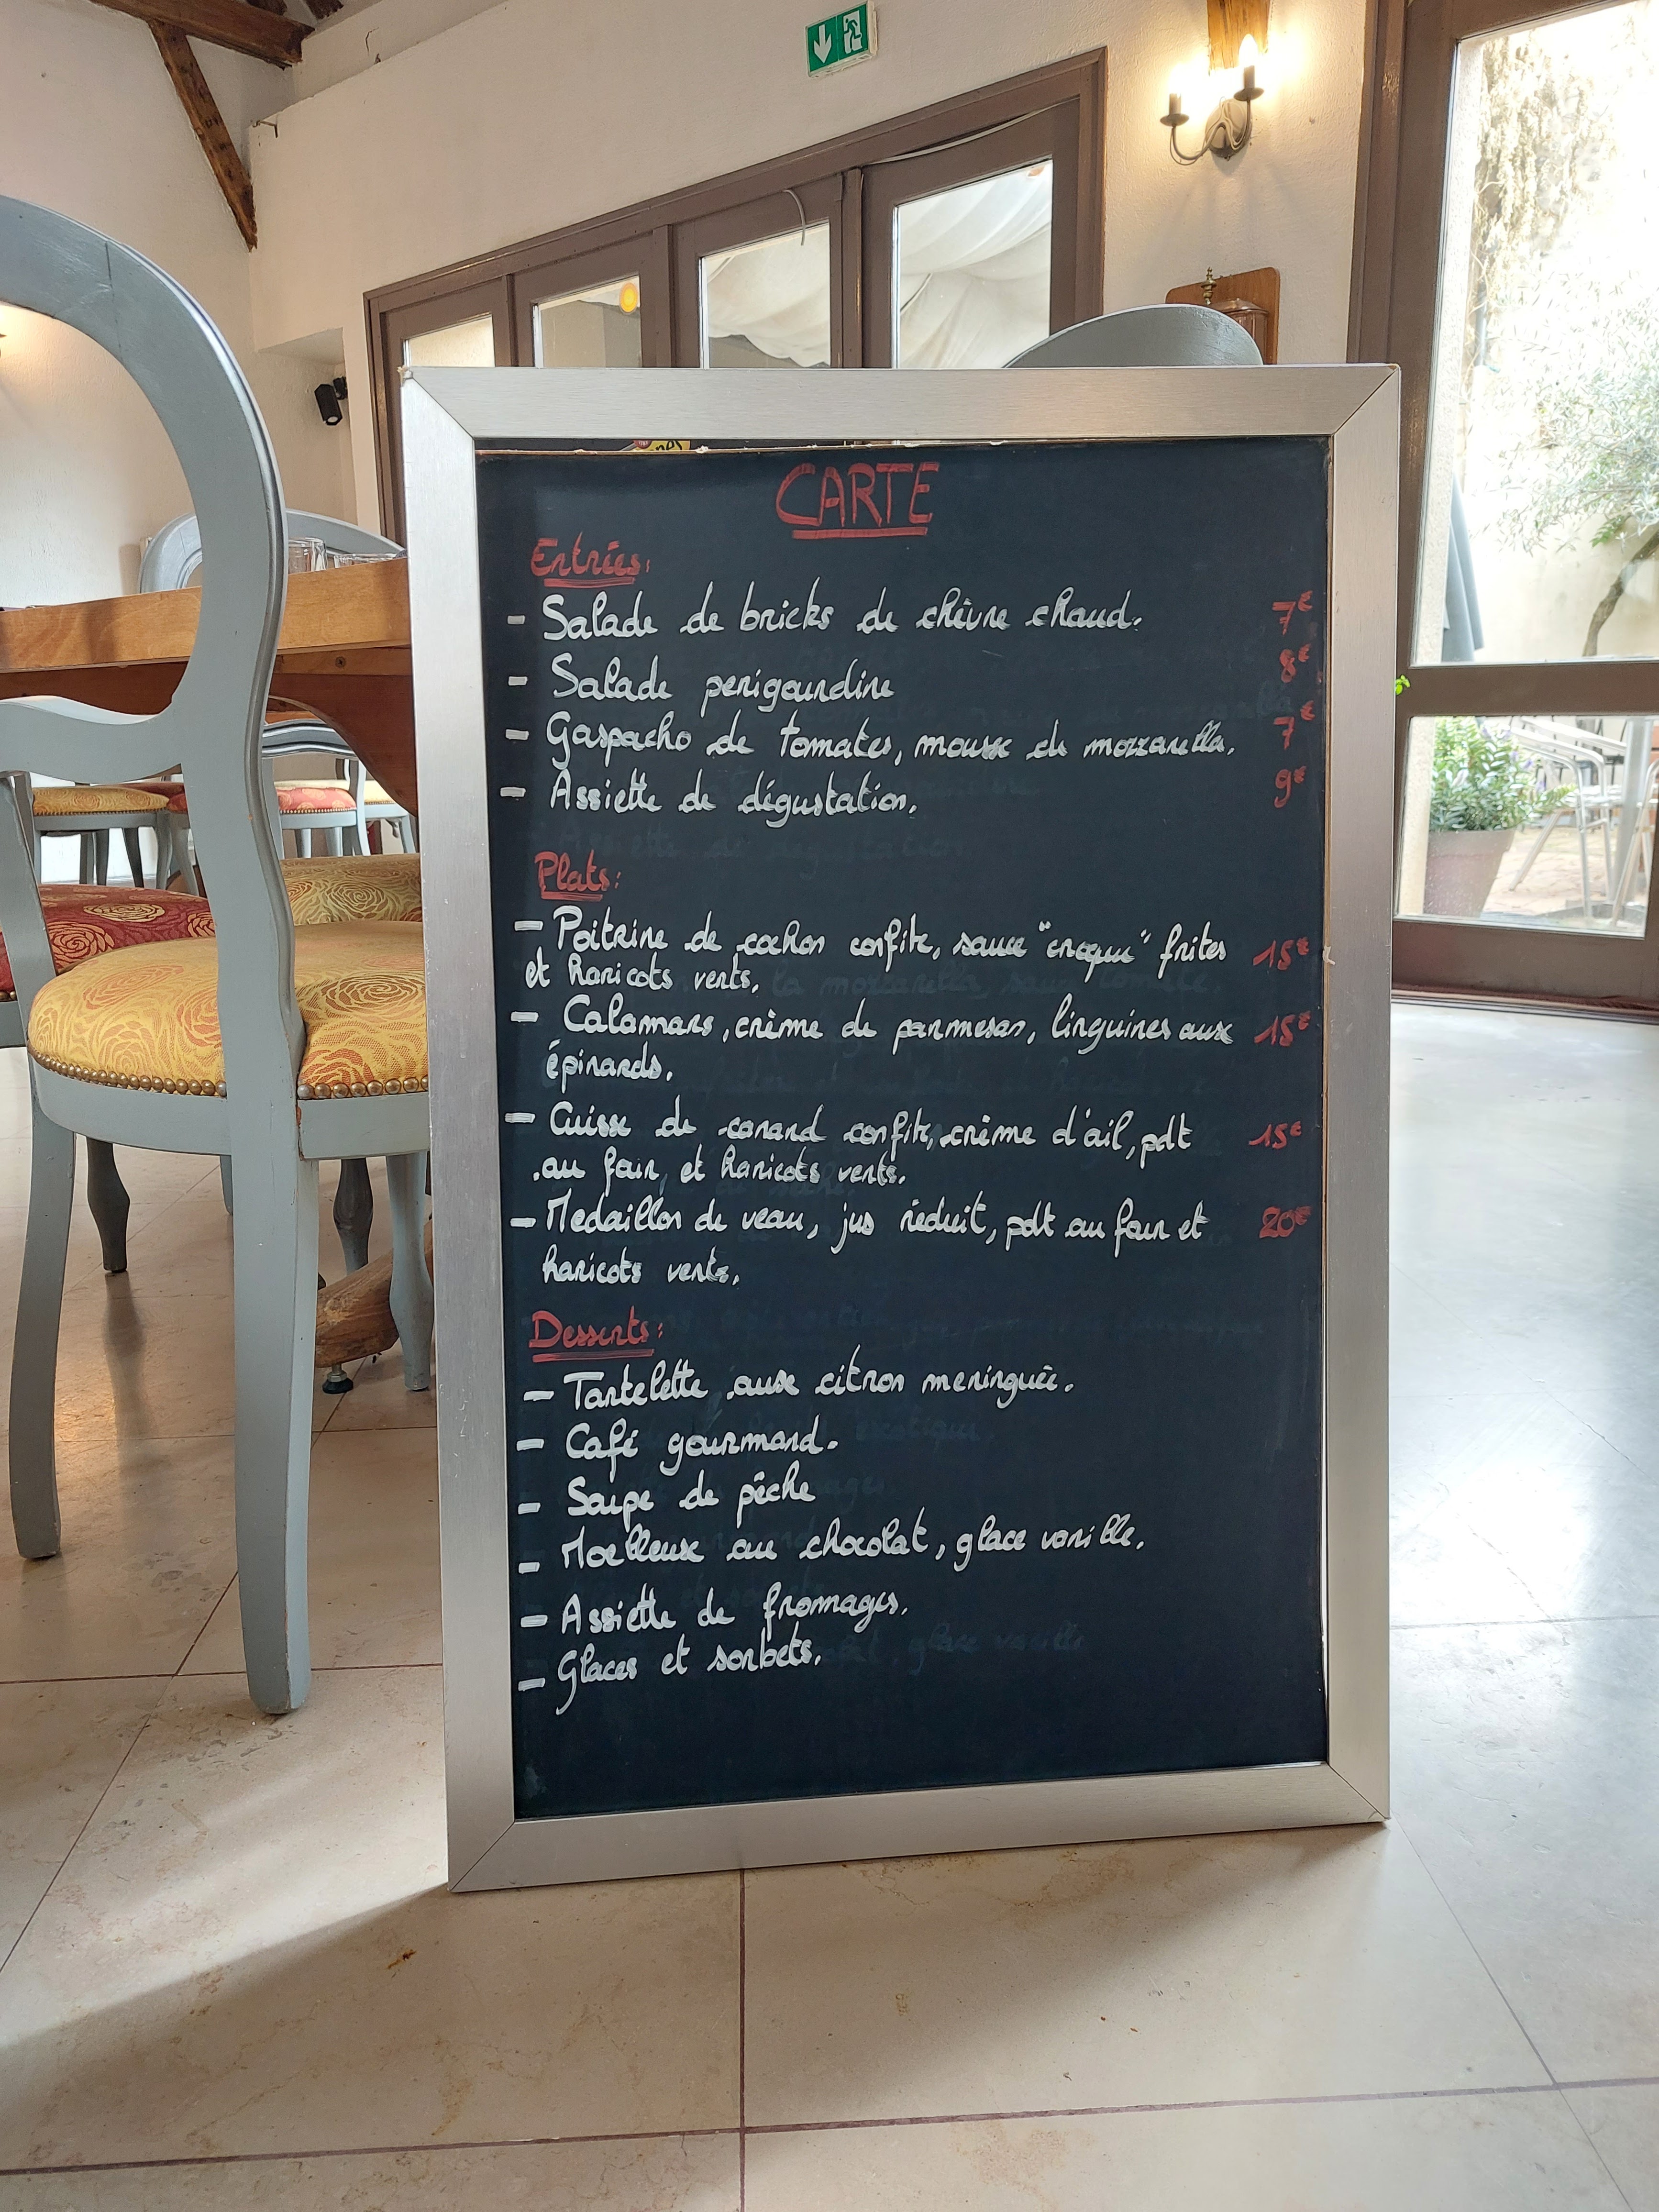 CARTE
Entrées:
- Salade de bricks de chèvre chaud. 7€
- Salade perigourdine 8€
- Gaspacho de tomates, mousse de mozzarella. 7€
- Assiette de dégustation. 9€
Plats:
- Poitrine de cochon confite, sauce "croque" frites 15€
et haricots verts.
- Calamars, crème de parmesan, linguines aux 15€
épinards.
- Cuisse de canard confite, crème d'ail, pdt 15€
au four, et haricots verts.
- Medaillon de veau, jus réduit, pdt au four et 20€
haricots verts.
Desserts:
- Tartelette aux citron meringuée.
- Café gourmand.
- Soupe de pêche
- Moelleux au chocolat, glace vanille.
- Assiette de fromages.
- Glaces et sorbets.